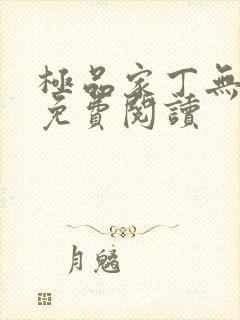 極品家丁無
免費閱讀
月魑